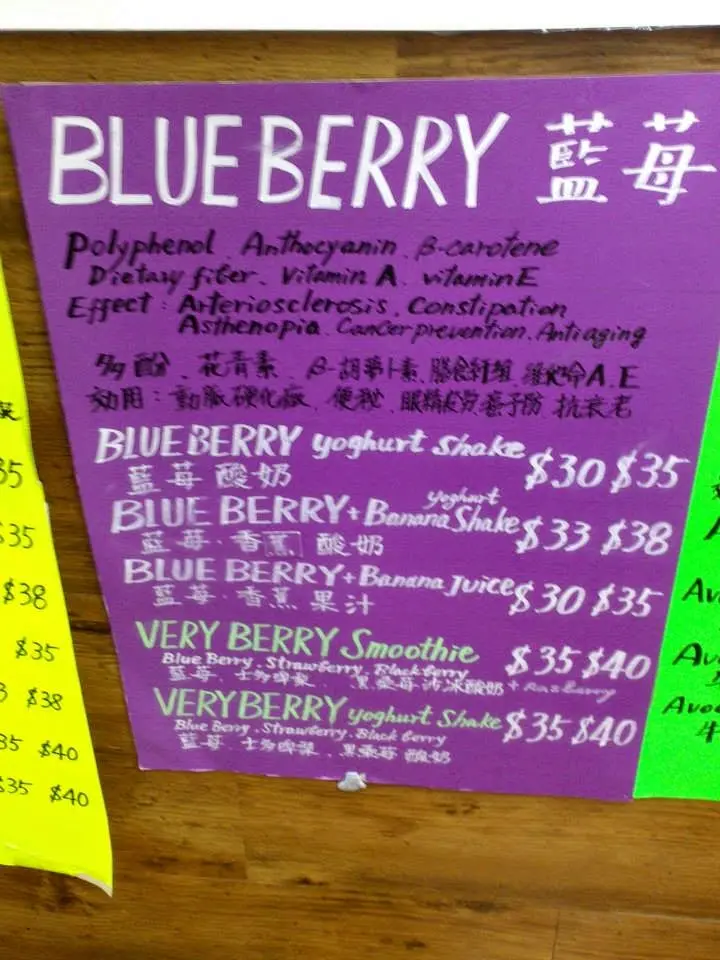 BLUEBERRY 藍莓
Polyphenol、Anthocyanin、β-carotene
Dietary fiber、Vitamin A、vitamin E
Effect: Arteriosclerosis、Constipation
Asthenopia、Cancer prevention、Anti aging
多酚、花青素、β-胡蘿卜素、膳食纖維、維他命A、E
効用：動脈硬化症、便秘、眼精疲労、癌予防、抗衰老
BLUEBERRY yoghurt Shake $30 $35
藍莓酸奶
BLUE BERRY+Banana yoghurt Shake $33 $38
藍莓·香蕉 酸奶
BLUE BERRY+Banana Juice $30 $35
藍莓·香蕉果汁
VERY BERRY Smoothie $35 $40
Blue Berry、Strawberry、Blackberry
藍莓、士多啤梨、黑桑莓沙冰酸奶
VERY BERRY yoghurt Shake $35 $40
Blue Berry、Strawberry、Black berry
藍莓、士多啤梨、黑桑莓 酸奶
35
$35
$38
$35
$38
35 $40
$35 $40
Av
Av
Avo
牛